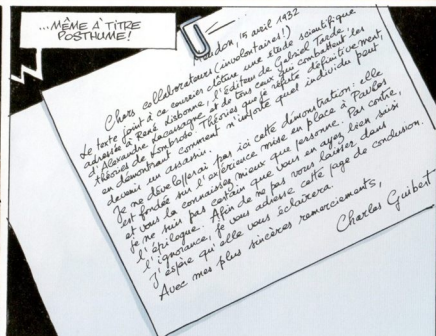 ...MÊME À TITRE
POSTHUME!
Meudon, 15 avril 1932
Chers collaborateurs (involontaires!)
Le texte joint à ce courrier clôture une étude scientifique
adressée à René Listrane, l'éditeur de Gabriel Tarde,
d'Alexandre Lacassagne et de tous ceux qui combattent les
théories de Lombroso. Théories que je réfute définitivement,
en démontrant comment n'importe quel individu peut
devenir un assassin.
Je ne développerai pas ici cette démonstration: elle
est fondée sur l'expérience mise en place à Pavlos
et vous la connaissez mieux que personne. Par contre,
je ne suis pas certain que vous en ayez bien saisi
l'épilogue. Afin de ne pas vous laisser dans
l'ignorance, je vous adresse cette page de conclusion.
J'espère qu'elle vous éclairera.
Avec mes plus sincères remerciements,
Charles Guibert